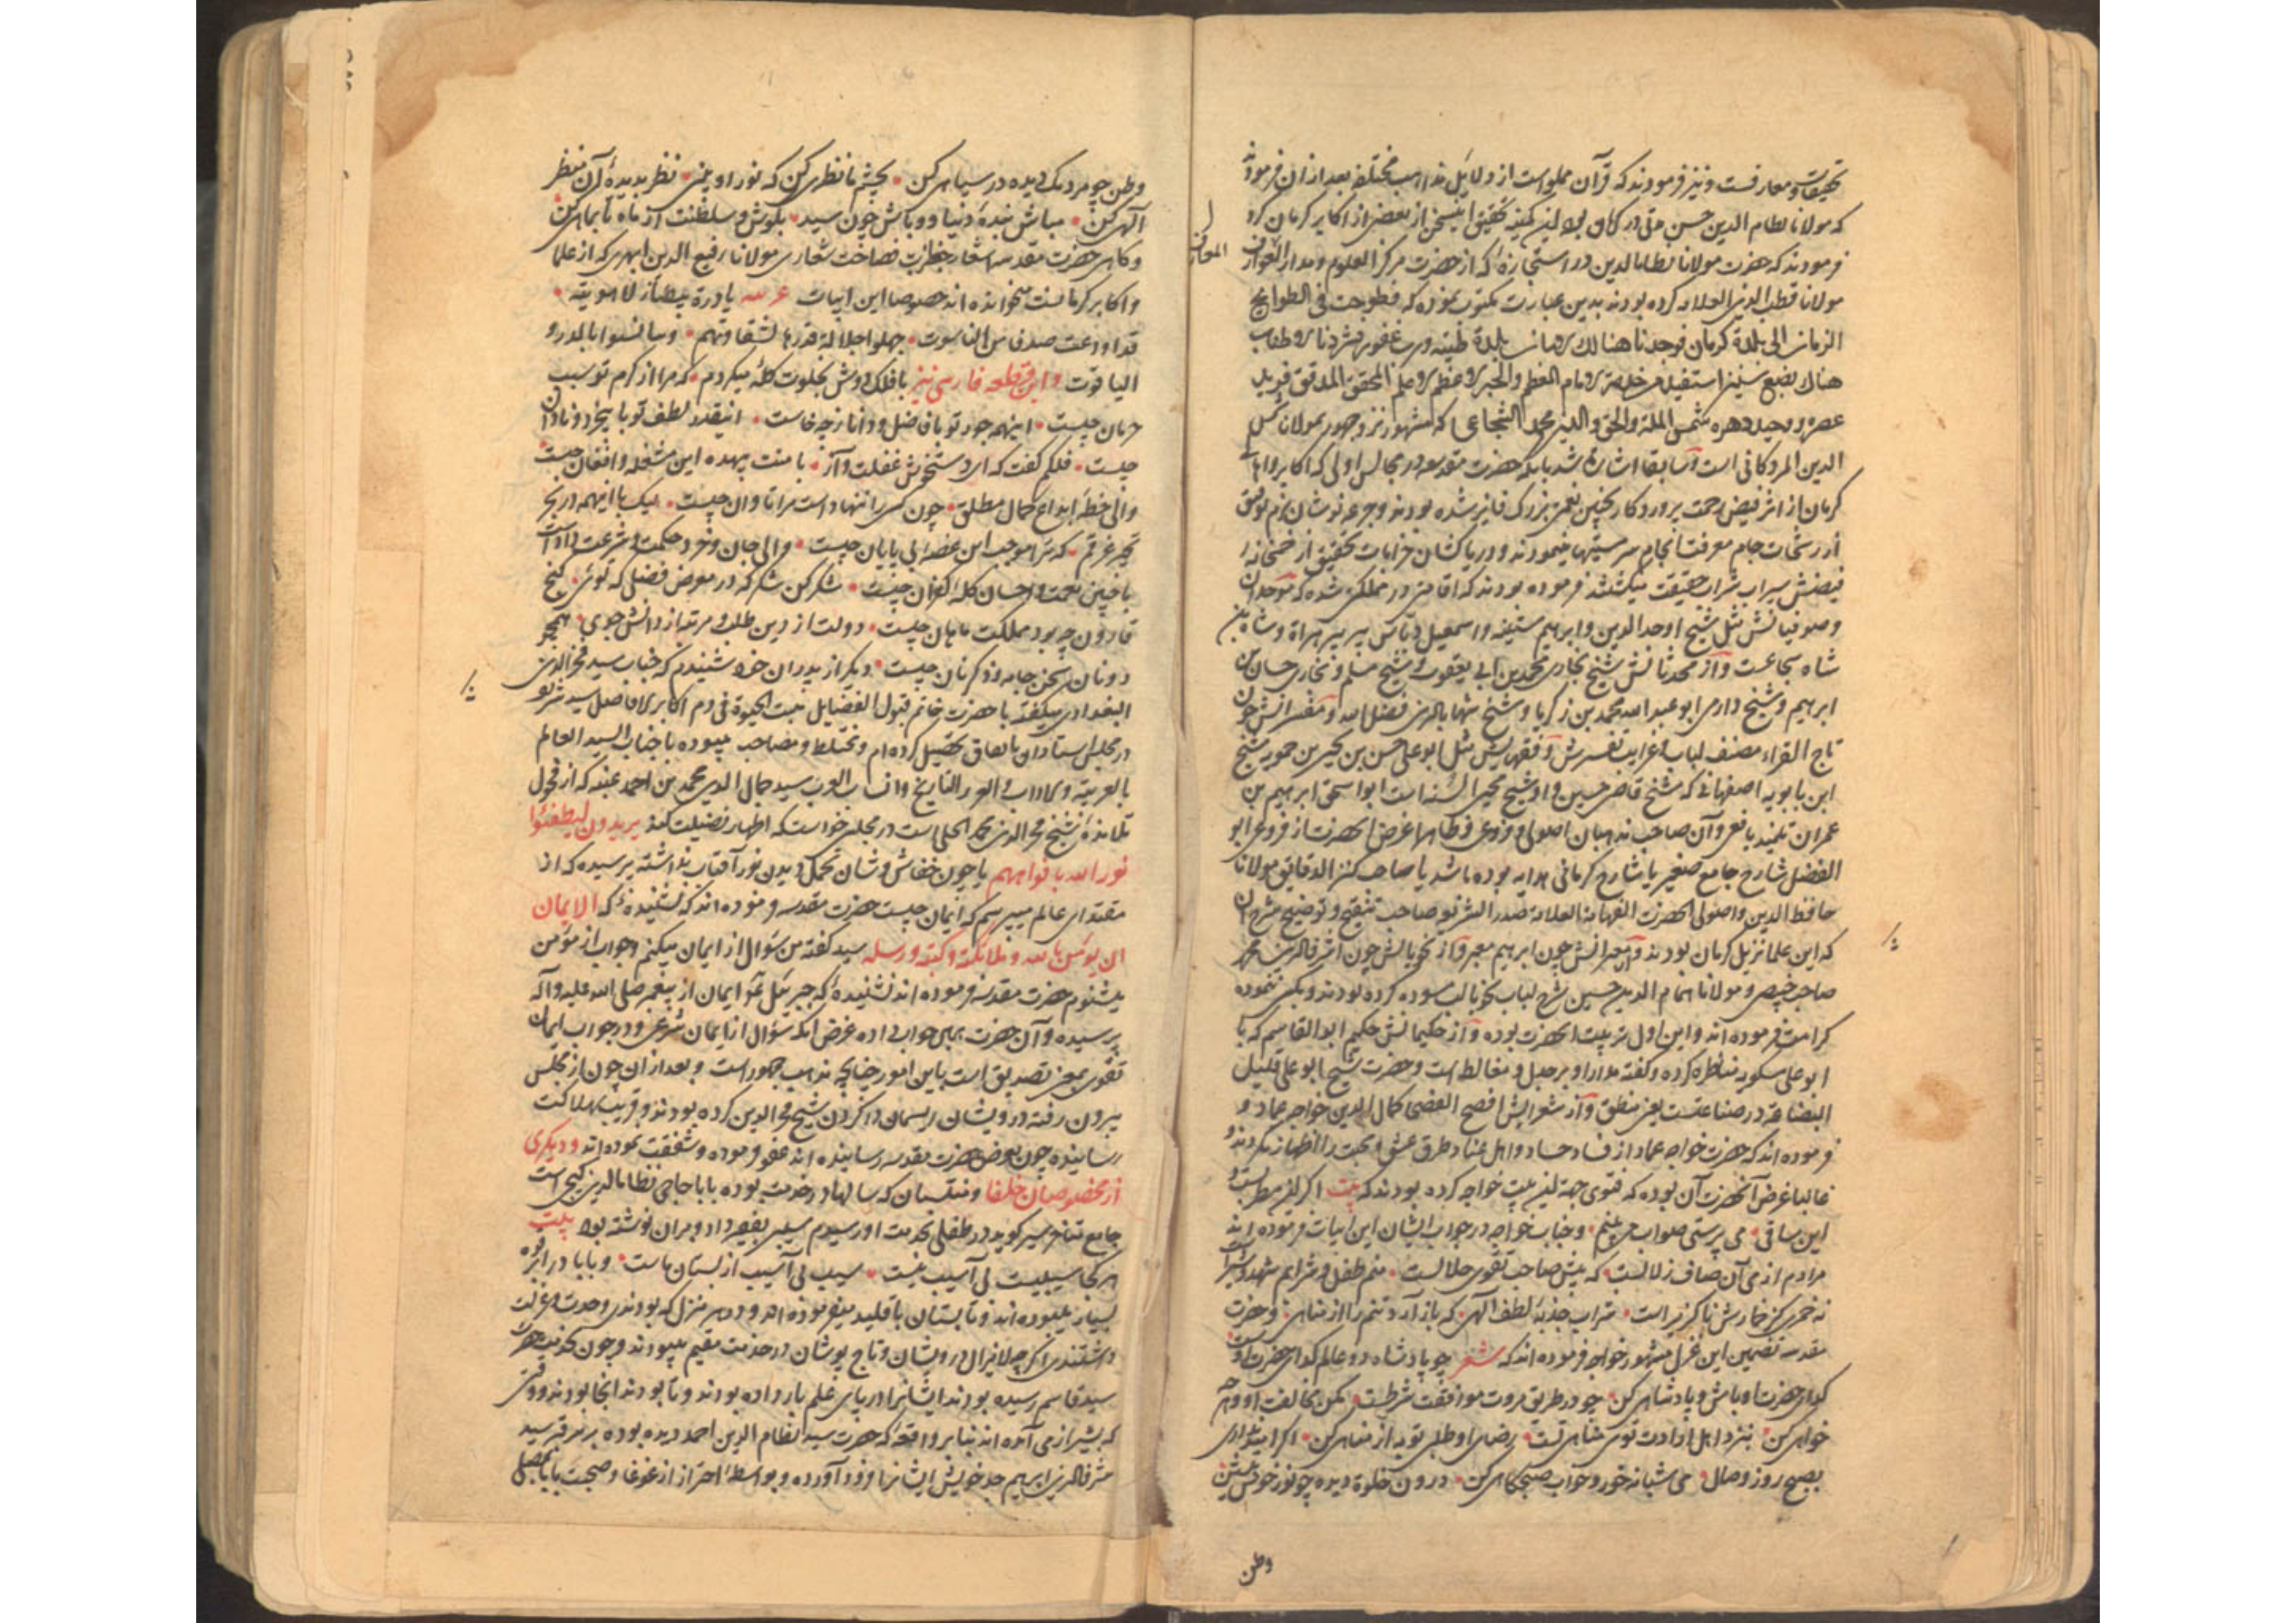 تحقیقات و معارفست و نیز فرمودند که قرآن مملو است از دلایل مذاهب مختلفه بعد از ان فرمودند
که مولانا نظام الدین حسن متی در کمال بود این کمینه تحقیق اینسخن از بعضی از اکابر کرمان کرد
فرمودند که حضرت مولانا نظام الدین در استجازهٔ که از حضرت مرکز العلوم و مدار
المعارف
مولانا قطب الدین العلامه کرده بودند بدین عبارت مکتوب نموده که فطوحت فی الطوایح
الزمان الی بلدة کرمان فوجدنا هنالک بلدة طیبه و رب غفور
هناک بضع سنین الامام المعظم والحبر الاعظم المحقق المدقق فرید
عصره و وحید دهره شمس الملة والحق والدین محمد الشجاعی که مشهور نزد جمهور بمولانا شمس
الدین است و سابقا اشارة شد بانکه حضرت مقدسه در مجالس اولی که اکابر و اهالی
کرمان از اثر فیض رحمت پروردکار بچنین نعمتی بزرک فایز شده بودند و جرعه نوشان بزم توفیق
از رشحات جام معرفت انجام سرمستیها مینمودند و دریا کشان خرابات تحقیق از خمخانه
فیضش سیراب شراب حقیقت میکشتند فرموده بودند که اقامتی در مملکتی شده که موحدان
و صوفیانش مثل شیخ اوحد الدین و ابرهیم و اسمعیل دباس پیر پیر هراة و شاه بن
شاه شجاعست و از محدثانش شیخ بخاری محمد بن ابی یعقوب و شیخ مسلم و بخاری حسان بن
ابرهیم و شیخ دارمی ابو عبد الله محمد بن زکریا و شیخ شهاب الدین فضل الله و مفسرانش چون
تاج القراء مصنف لباب و غرایب تفسیرش و فقهایش مثل ابو علی حسن بن یحیی بن حمویه شیخ
ابن بابویه اصفهانی که شیخ قاضی حسین و او شیخ محیی السنه است ابو اسحق ابرهیم بن
عمران تلمیذ یافعی و آن صاحب مذهبان اصولی و فروعی و ظاهرا غرض انحضرت از فروعی ابو
الفضل شارح جامع صغیر یا شارح کرمانی هدایه بوده باشد یا صاحب کنز الدقایق مولانا
حافظ الدین و اصولی انحضرت الفهامة العلامة صدر الشریعه صاحب تنقیح و توضیح شرح آن
که این علما نزیل کرمان بودند و از چون ابرهیم و از نحویانش چون اشرف الدین محمد
صاحب و مولانا همام الدین حسین شرح لباب نحو بالب سوده کرده بودند
کرامت فرموده اند و این اول تربیت انحضرت بوده و از حکیمانش حکیم ابو القاسم که با
ابو علی مناظره کرده و کفته مدار او بر جدل و مغالطه است و حضرت شیخ ابو علی قلیل
البضاعة در صناعتست یعنی منطق و از شعرایش افصح الفصحا کمال الدین خواجه عماد و
فرموده اند که حضرت خواجه عماد از فساد حساد و اهل عناد طرق عشق و محبت را اظهار نکردند و
غالبا غرض آنحضرت آن بوده که فتوی جهة این بیت خواجه کرده بودند که بیت اکر این مطربست و
این ساقی می پرستی صواب می بینم و جناب خواجه در جواب ایشان این ابیات فرموده اند
مرادم از می آن صاف زلالست که پیش صاحب تقوی حلالست منم طفل و شرابم شهد و شیر است
نه خمری کز خمارش ناکزیر است شراب جذبهٔ لطف الهی که باز آرد تنم را از مناهی و حضرت
مقدسه تضمین این غزل مشهور خواجه فرموده اند که شعر چو پادشاه دو عالم کدای حضرت اوست
کدای حضرت او باش و پادشاهی کن چو در طریق مروت موافقت شرطست مکن مخالفت او و هر چه
خواهی کن بنزد اهل ارادت توی خناهی تست رضای او طلبی توبه از مناهی کن اکر امید داری
بصبح روز وصال می شبانه خور و خواب صبحکاهی کن درون خلوة دیده چو نور خوش بنشین
وطن
وطن چو مردمک دیده در سیاهی کن بچشم ما نظری کن که نور او بینی نظر بدیدهٔ آن منظر
الهی کن مباش بندهٔ دنیا و باش چون سید بکوش و سلطنت از ماه تا بماهی کن
و کاهی حضرت مقدسه اشعار فصاحت شعاری مولانا رفیع الدین ابهری که از علما
و اکابر کرمانست میخوانده اند خصوصا این ابیات عربیه یا درة بیضاء لاهوتیة
قد اودعت صدفا من الناسوت جهلوا جلالة قدرها لشقاوتهم
الیاقوت و این قطعه فارسی نیز با فلک دوش بخلوت کله میکردم که مرا از کرم تو سبب
حرمان چیست اینهمه جور تو با فاضل و دانا ز چه خاست اینقدر لطف تو با بیخرد و نادان
چیست فلکم کفت که ای غفلت و آز با منت بیهده این مشغله و افغان چیست
والی خطهٔ ابداع کمال مطلق چون کسی را ننهادست مرا تاوان چیست لیک با اینهمه در بحر
تحیر غرقم که ترا موجب این غصه بی پایان چیست والی جان و خرد و حکمت و شرعت دادست
با چنین نعمت و احسان کله کفران چیست شکر کن شکر که در معرض فضلی که توئی کنج
قارون چه بود مملکت هامان چیست دولت از دین طلب و مرتبه از دانش جوی همچو
دونان سخن جامه و ذکر نان چیست دیکر از پدران خود شنیدم که جناب سید فخر الدین
البغدادی میکفته با حضرت خاتم قبول الفضایل نیت الحیوة فی دم اکابر الافاضل سید شریف
در مجلس استادان باتفاق تحصیل کرده ام و مختلط و مصاحب میبوده با جناب السید العالم
بالعربیة و الاداب و التاریخ و انساب العرب سید جمال الدین محمد بن احمد عنبه که از فحول
تلامذهٔ شیخ فخر الدین محمد الحلی است در مجلس خواست که اظهار فضیلت کند یریدون لیطفئوا
نور الله بافواههم یا چون خفاش وشان تحمل دیدن نور آفتاب نداشته پرسیده که از
مقتدای عالم میپرسم که ایمان چیست حضرت مقدسه فرموده اند که نشنیدهٔ که الایمان
ان یومن بالله و ملائکته و کتبه و رسله سید کفته من سؤال از ایمان میکنم و جواب از مؤمن
میشنوم حضرت مقدسه فرموده اند نشنیدهٔ که جبرئیل نحو ایمان از پیغمبر صلی الله علیه و آله
پرسیده و آن حضرت همین جواب داده غرض انکه سؤال از ایمان شرعی و در جواب ایمان
تقوی بمعنی تصدیق است باین امور چنانچه مذهب جمهور است و بعد از ان چون از مجلس
بیرون رفته درویشان ریسمان در کردن شیخ فخر الدین کرده بودند و قریب بهلاکت
رسانیده چون بعرض حضرت مقدسه رسانیده اند عفو فرموده و شفقت نموده اند و دیکری
از مخصوصان خلفا و منتسبان که سالها در خدمت بوده بابا حاجی نظام الدین کیجی است
جامع میکوید در طفلی بخدمت او رسیدم سیبی بفقیر داد و بران نوشته بود بیت
هر کجا سیبیست بی آسیب نیست سیب بی آسیب از بستان ماست و بابا در ابرقوه
بسیار میبوده اند و تابستان باقلید میفرموده اند و در هر منزل که بودندی وحدت و عزلت
داشتندی اکرچه لایزال درویشان و تاج پوشان در خدمت مقیم میبودند و چون بخدمت حضرت
سید قاسم رسیده بودند ایشانرا در پای علم بار داده بودند و تا بودند انجا بودند و وقتی
که بشیراز می آمده اند بنابر واقعهٔ که حضرت سید نظام الدین احمد دیده بوده بر سر قبر سید
شرف الدین ابرهیم جد خویش ایشانرا فرود آورده و بواسطهٔ احتراز از غوغا و صحبت